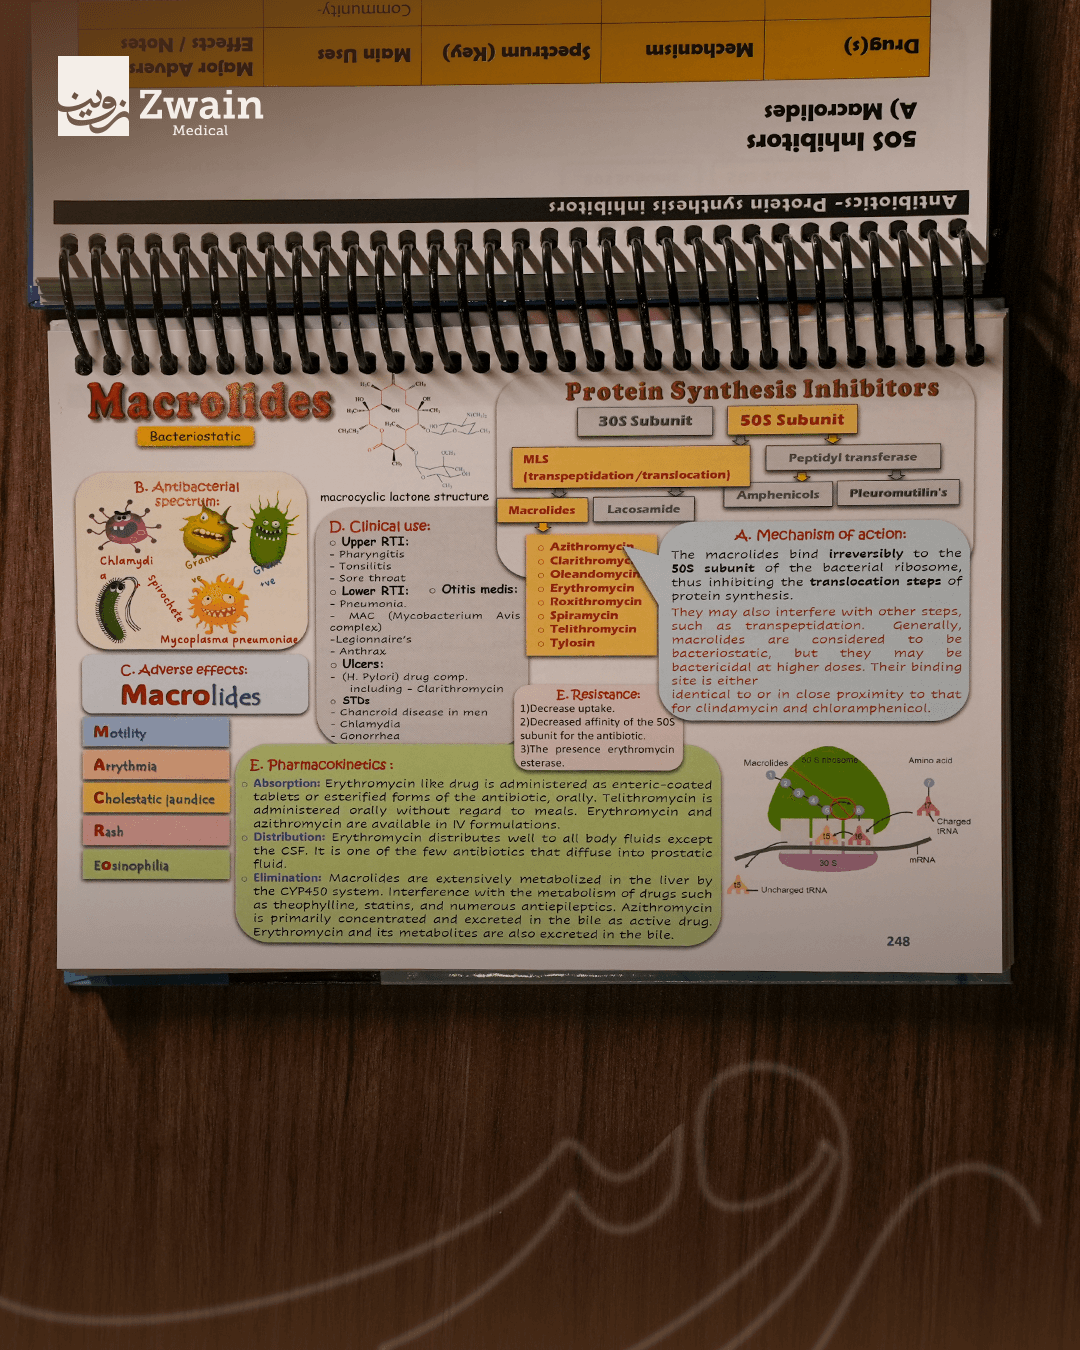 Community-
Drug(s) Mechanism Spectrum (Key) Main Uses Major Adverse Effects / Notes
A) Macrolides
50S Inhibitors
Antibiotics- Protein synthesis inhibitors
زوين
Zwain
Medical
Macrolides
Bacteriostatic
macrocyclic lactone structure
Protein Synthesis Inhibitors
30S Subunit
50S Subunit
MLS
(transpeptidation /translocation)
Peptidyl transferase
Macrolides
Lacosamide
Amphenicols
Pleuromutilin's
Azithromycin
Clarithromyc
Oleandomycin
Erythromycin
Roxithromycin
Spiramycin
Telithromycin
Tylosin
A. Mechanism of action:
The macrolides bind irreversibly to the
50S subunit of the bacterial ribosome,
thus inhibiting the translocation steps of
protein synthesis.
They may also interfere with other steps,
such as transpeptidation. Generally,
macrolides are considered to be
bacteriostatic, but they may be
bactericidal at higher doses. Their binding
site is either
identical to or in close proximity to that
for clindamycin and chloramphenicol.
B. Antibacterial
spectrum:
Chlamydi
a
Gram
-ve
Gram
+ve
Spirochete
Mycoplasma pneumoniae
C. Adverse effects:
Macrolides
Motility
Arrythmia
Cholestatic jaundice
Rash
Eosinophilia
D. Clinical use:
o Upper RTI:
- Pharyngitis
- Tonsilitis
- Sore throat
o Lower RTI: o Otitis medis:
- Pneumonia.
- MAC (Mycobacterium Avis
complex)
-Legionnaire's
- Anthrax
o Ulcers:
- (H. Pylori) drug comp.
including - Clarithromycin
o STDs
- Chancroid disease in men
- Chlamydia
- Gonorrhea
E. Resistance:
1)Decrease uptake.
2)Decreased affinity of the 50S
subunit for the antibiotic.
3)The presence erythromycin
esterase.
E. Pharmacokinetics :
o Absorption: Erythromycin like drug is administered as enteric-coated
tablets or esterified forms of the antibiotic, orally. Telithromycin is
administered orally without regard to meals. Erythromycin and
azithromycin are available in IV formulations.
o Distribution: Erythromycin distributes well to all body fluids except
the CSF. It is one of the few antibiotics that diffuse into prostatic
fluid.
o Elimination: Macrolides are extensively metabolized in the liver by
the CYP450 system. Interference with the metabolism of drugs such
as theophylline, statins, and numerous antiepileptics. Azithromycin
is primarily concentrated and excreted in the bile as active drug.
Erythromycin and its metabolites are also excreted in the bile.
Macrolides
50 S ribosome
Amino acid
Charged
tRNA
mRNA
30 S
Uncharged tRNA
248